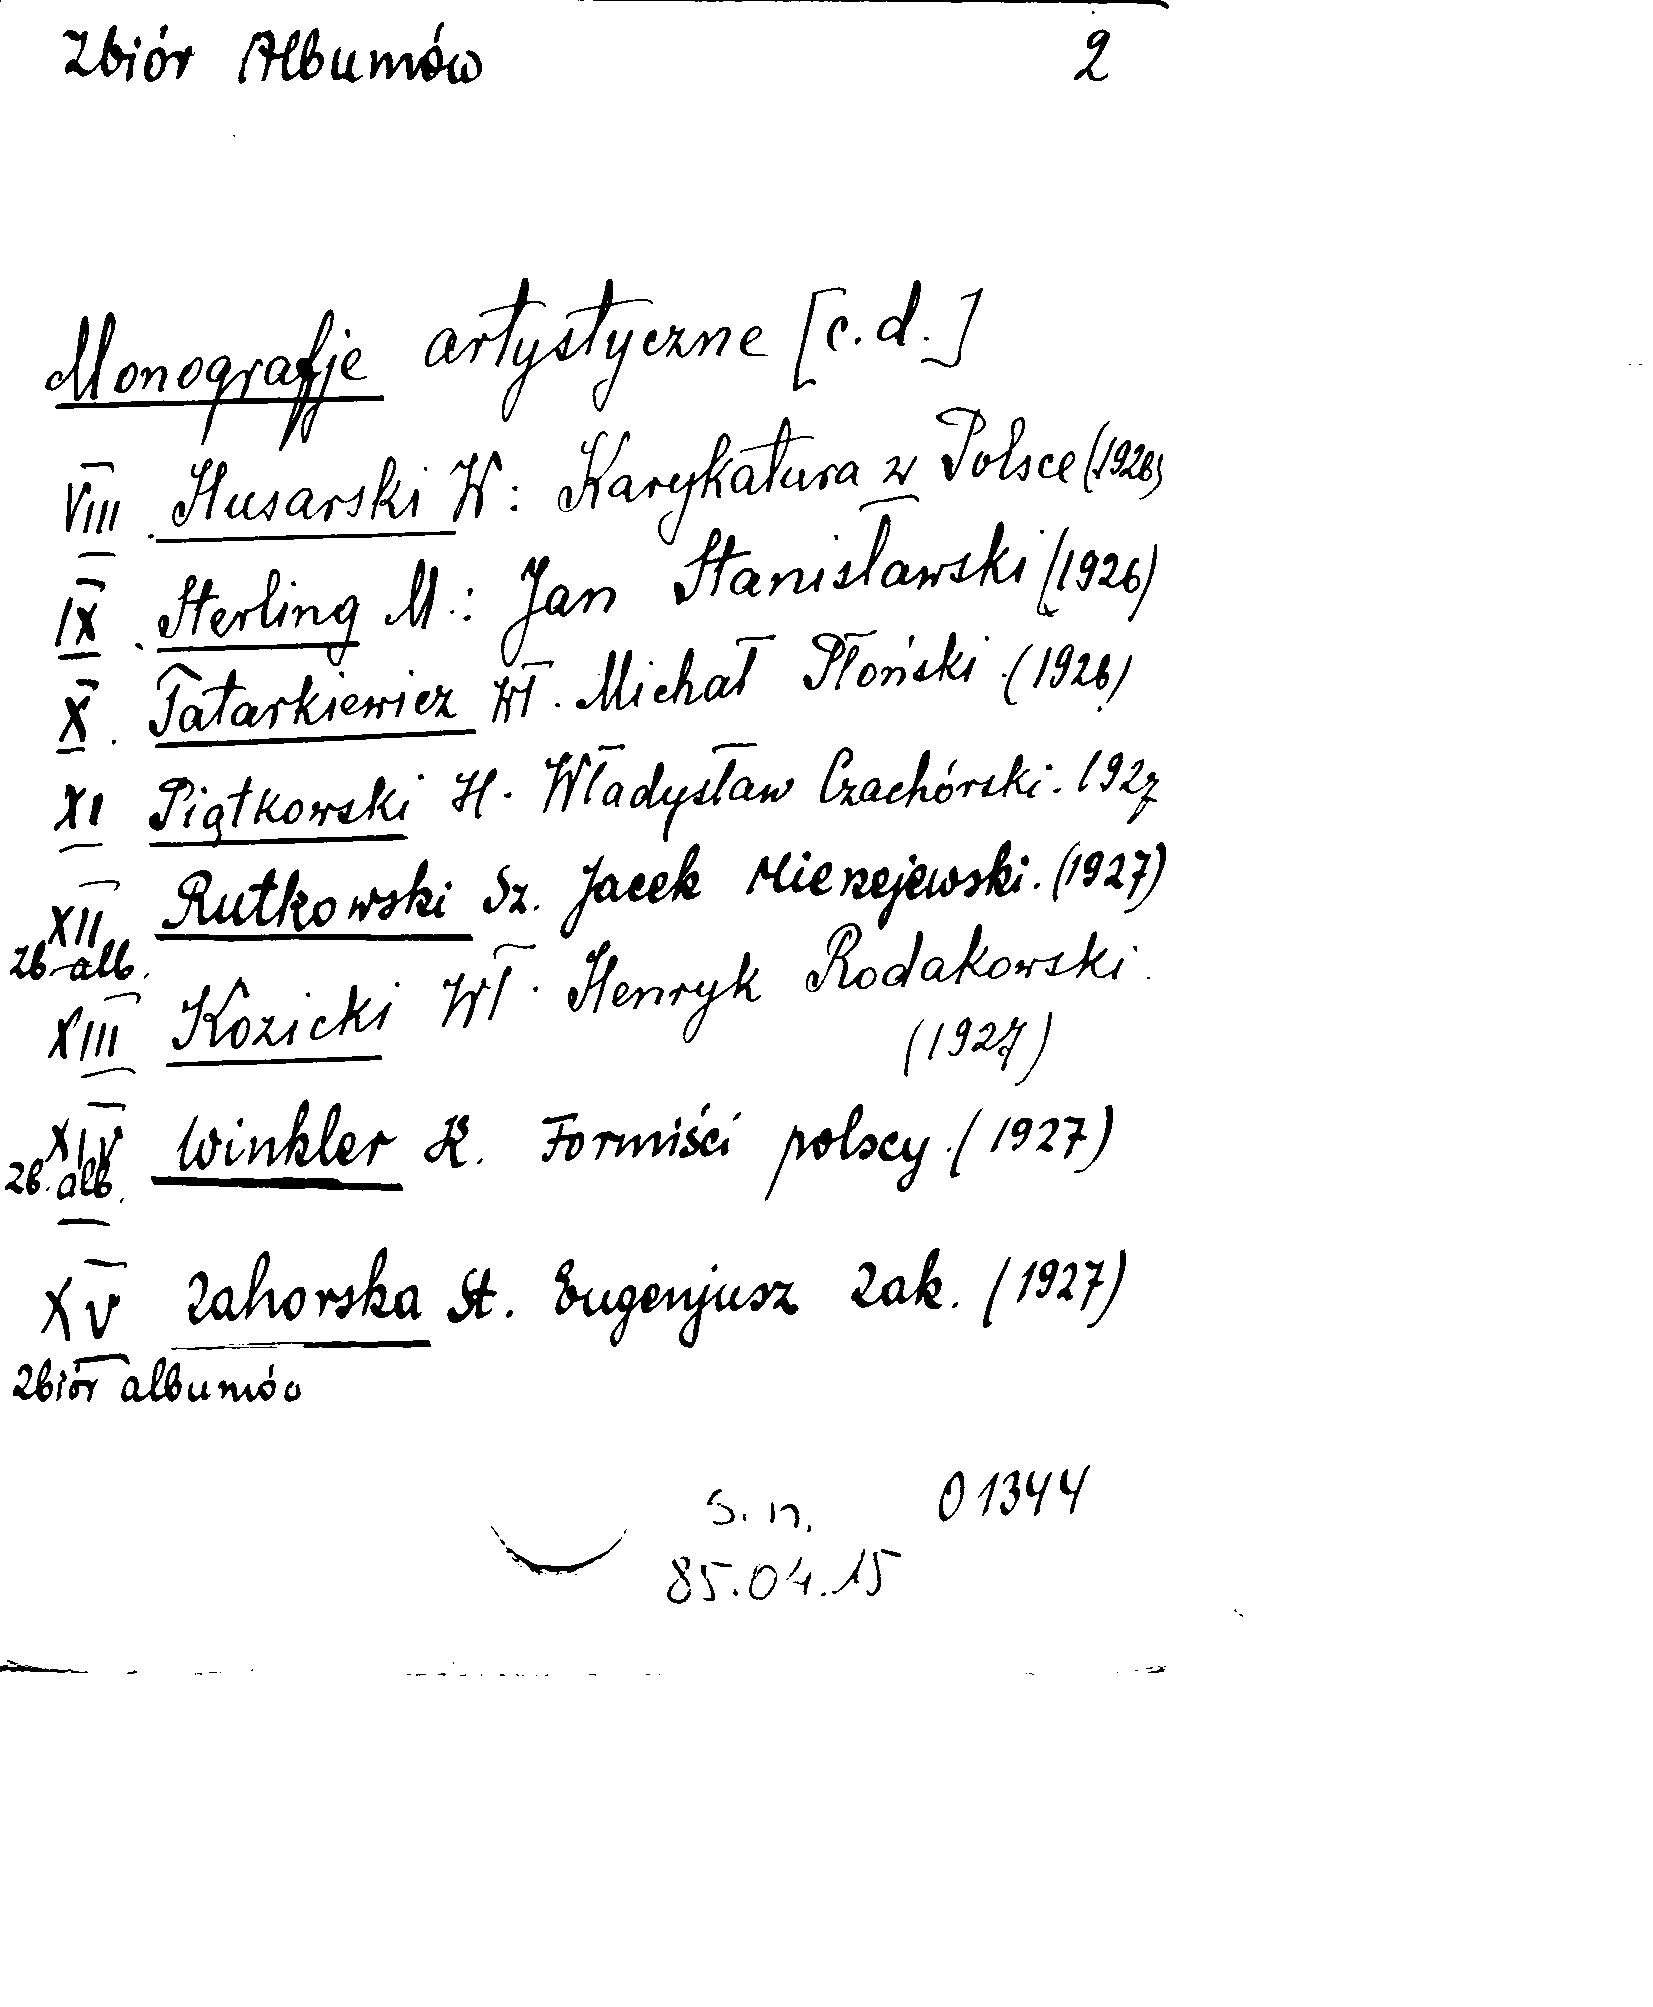 Zbiór Albumów 2
Monografje artystyczne [c.d.]
VIII. Husarski W: Karykatura w Polsce (1926)
IX. Sterling M.: Jan Stanisławski (1926)
X. Tatarkiewicz Wł. Michał Płoński. (1926)
XI Piątkowski H. Władysław Czachórski. 1927
XII Rutkowski Sz. Jacek Mierzejewski. (1927)
zb. alb.
XIII Kozicki Wł. Henryk Rodakowski.
(1927)
XIV Winkler K. Formiści polscy. (1927)
zb. alb.
XV Zahorska St. Eugenjusz Zak. (1927)
Zbiór albumów
s. n. 01344
85.04.15